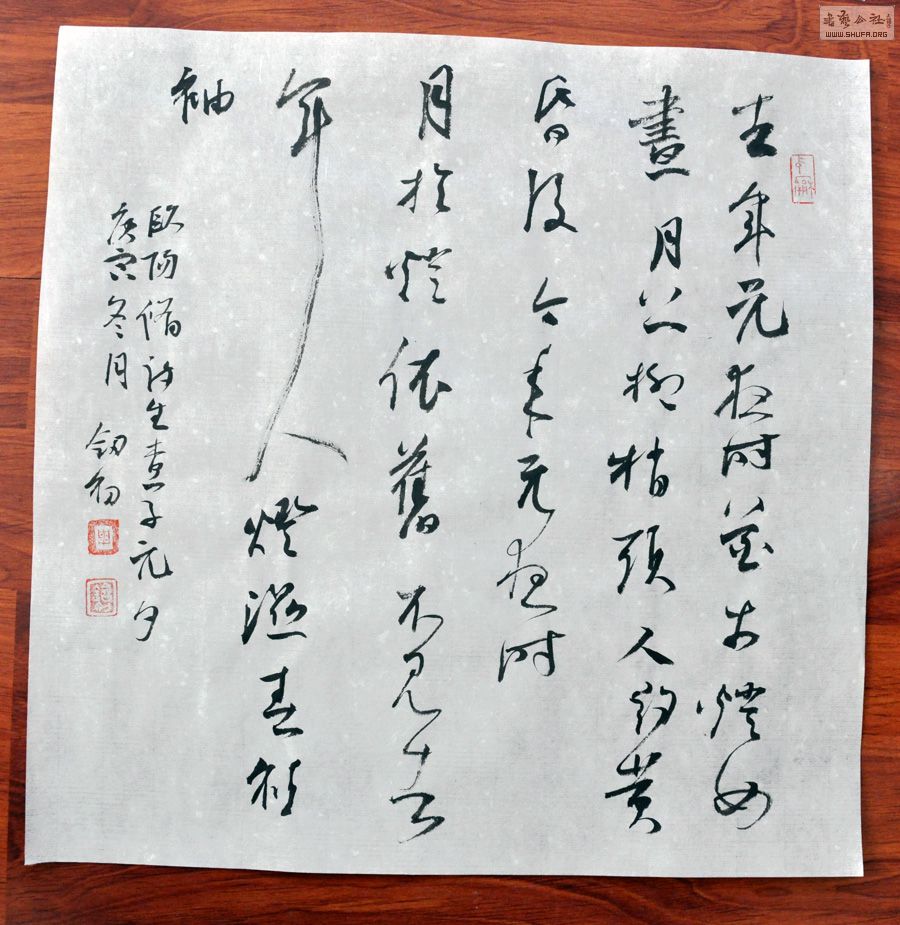 去年元夜时花市燈如
晝月上柳梢頭人約黄
昏後今年元夜时
月於燈依舊不見去
年人燈濕春衫
袖
歐陽脩詩生查子元夕
庚寅冬月
書藝公社
WWW.SHUFA.ORG